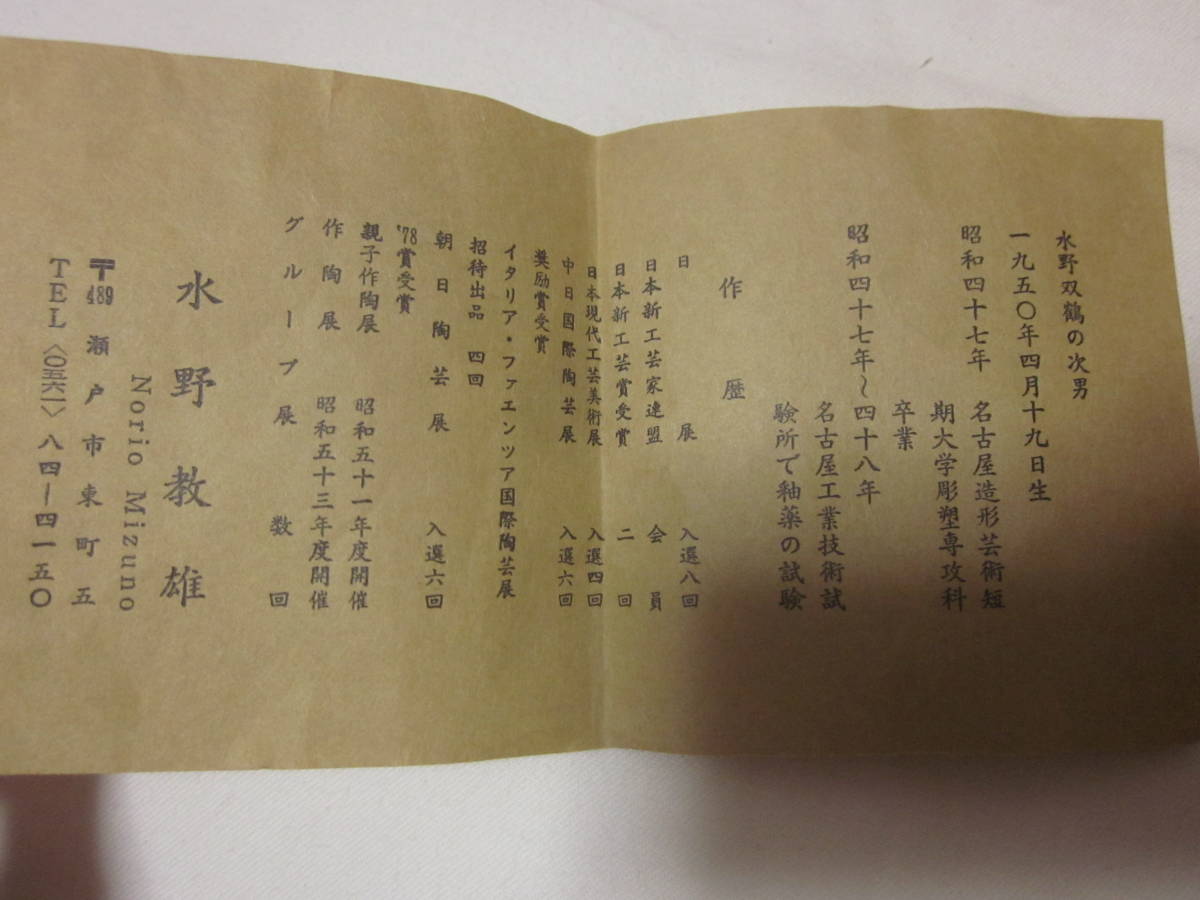 水野双鶴の次男
一九五〇年四月十九日生
昭和四十七年 名古屋造形芸術短
期大学彫塑専攻科
卒業
昭和四十七年~四十八年
名古屋工業技術試
験所で釉薬の試験
作歴
日展 入選八回
日本新工芸家連盟 会員
日本新工芸賞受賞 二回
日本現代工芸美術展 入選四回
中日国際陶芸展 入選六回
奨励賞受賞
イタリア・ファエンツァ国際陶芸展
招待出品 四回
朝日陶芸展 入選六回
'78賞受賞
親子作陶展 昭和五十一年度開催
作陶展 昭和五十三年度開催
グループ展 数回
水野教雄
Norio Mizuno
〒489 瀬戸市東町五
TEL〈〇五六一〉八四ー四一五〇